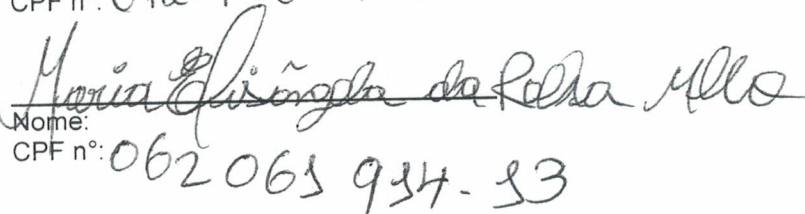 CPF nº:
Maria Elisângela da Rocha Mello
Nome:
CPF nº: 062 061 914-13